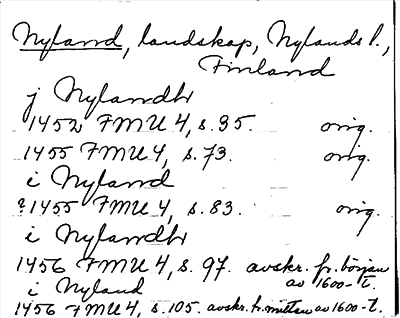 Nyland, landskap, Nylands l.,
Finland
j Nylandh
1452 FMU 4, s. 35. orig.
1455 FMU 4, s. 73. orig.
i Nyland
?1455 FMU 4, s. 83. orig.
i Nylandh
1456 FMU 4, s. 97. avskr. fr. början
av 1600-t.
i Nyland
1456 FMU 4, s. 105. avskr. fr. mitten av 1600-t.